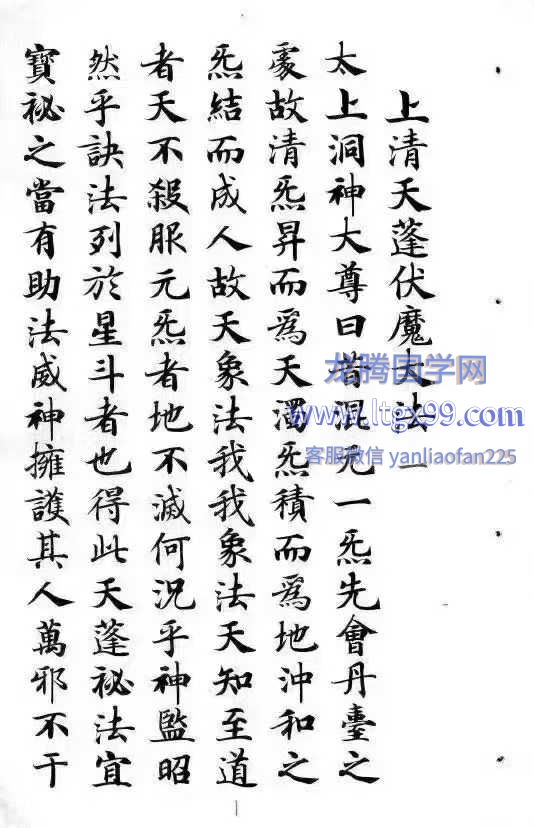 上清天蓬伏魔大法一
太上洞神大尊曰昔混元一炁先會丹臺之
處故清炁昇而爲天濁炁積而爲地沖和之
炁結而成人故天象法我我象法天知至道
者天不殺服元炁者地不滅何況乎神監昭
然乎訣法列於星斗者也得此天蓬秘法宜
寶祕之當有助法威神擁護其人萬邪不干
龙腾国学网
www.ltgx99.com
客服微信 yanliaofan225